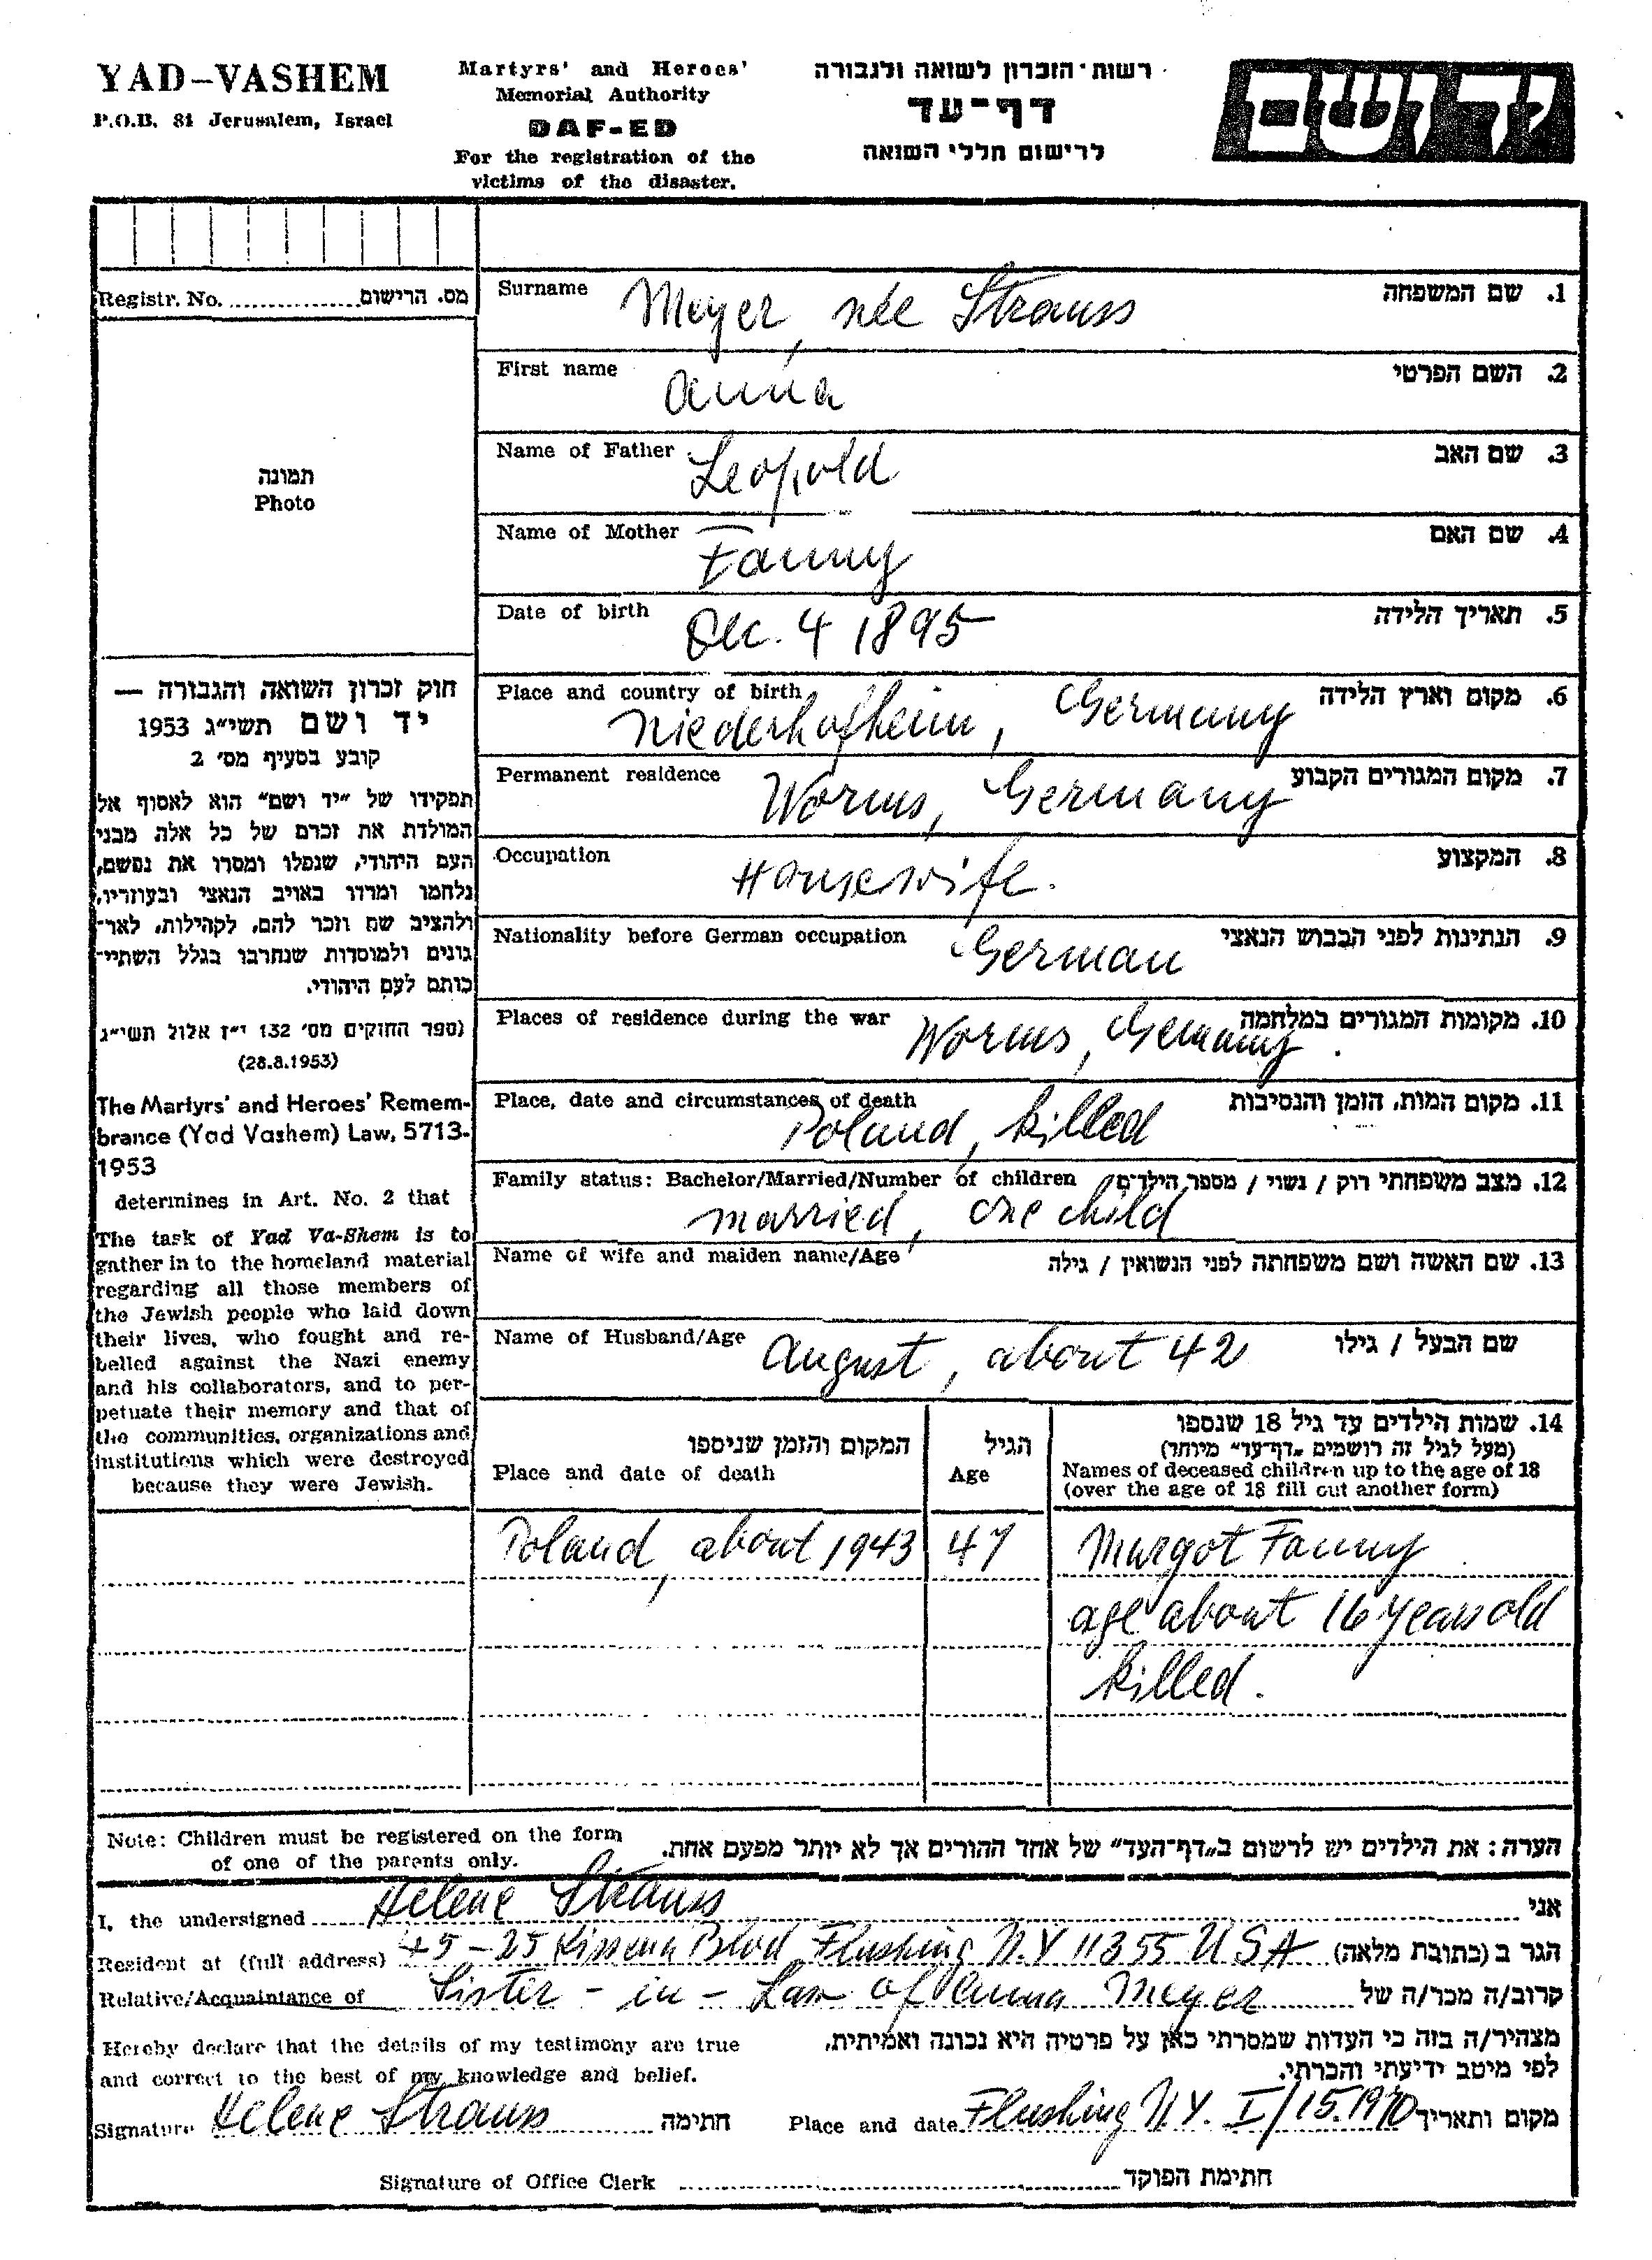 YAD-VASHEM
P.O.B. 84 Jerusalem, Israel
Martyrs' and Heroes'
Memorial Authority
DAF-ED
For the registration of the
victims of the disaster.
רשות-הזכרון לשואה ולגבורה
דף-עד
לרישום חללי השואה
יד ושם
Registr. No. מס. הרישום
תמונה
Photo
חוק זכרון השואה והגבורה —
יד ושם תשי"ג 1953
קובע בסעיף מס' 2
תפקידו של "יד ושם" הוא לאסוף אל
המולדת את זכרם של כל אלה מבני
העם היהודי, שנפלו ומסרו את נפשם,
נלחמו ומרדו באויב הנאצי ובעוזריו,
ולהציב שם וזכר להם, לקהילות, לאר-
גונים ולמוסדות שנחרבו בגלל השתיי-
כותם לעם היהודי.
(ספר החוקים מס' 132 י"ז אלול תשי"ג
(28.8.1953)
The Martyrs' and Heroes' Remem-
brance (Yad Vashem) Law, 5713-
1953
determines in Art. No. 2 that
The task of Yad Va-Shem is to
gather in to the homeland material
regarding all those members of
the Jewish people who laid down
their lives, who fought and re-
belled against the Nazi enemy
and his collaborators, and to per-
petuate their memory and that of
the communities, organizations and
institutions which were destroyed
because they were Jewish.
Surname Meyer, née Strauss 1. שם המשפחה
First name Anna 2. השם הפרטי
Name of Father Leopold 3. שם האב
Name of Mother Fanny 4. שם האם
Date of birth Dec. 4 1895 5. תאריך הלידה
Place and country of birth Niederhofheim, Germany 6. מקום וארץ הלידה
Permanent residence Worms, Germany 7. מקום המגורים הקבוע
Occupation Housewife. 8. המקצוע
Nationality before German occupation German 9. הנתינות לפני הכבוש הנאצי
Places of residence during the war Worms, Germany. 10. מקומות המגורים במלחמה
Place, date and circumstances of death Poland, killed 11. מקום המות, הזמן והנסיבות
Family status: Bachelor/Married/Number of children 12. מצב משפחתי רוק / נשוי / מספר הילדים
married, one child
Name of wife and maiden name/Age 13. שם האשה ושם משפחתה לפני הנשואין / גילה
Name of Husband/Age August, about 42 שם הבעל / גילו
המקום והזמן שניספו
Place and date of death
הגיל
Age
14. שמות הילדים עד גיל 18 שנספו
(מעל לגיל זה רושמים "דף-עד" מיוחד)
Names of deceased children up to the age of 18
(over the age of 18 fill out another form)
Poland, about 1943 47 Margot Fanny
age about 16 years old
killed.
Note: Children must be registered on the form
of one of the parents only.
הערה: את הילדים יש לרשום ב"דף-העד" של אחד ההורים אך לא יותר מפעם אחת.
I, the undersigned Helene Strauss אני
Resident at (full address) 45-25 Kissena Blvd Flushing N.Y 11355 USA הגר ב (כתובת מלאה)
Relative/Acquaintance of Sister-in-Law of Anna Meyer קרוב/ה מכר/ה של
Hereby declare that the details of my testimony are true
and correct to the best of my knowledge and belief.
מצהיר/ה בזה כי העדות שמסרתי כאן על פרטיה היא נכונה ואמיתית,
לפי מיטב ידיעתי והכרתי.
Signature Helene Strauss חתימה Place and date Flushing N.Y. I/15.1970 מקום ותאריך
Signature of Office Clerk חתימת הפוקד